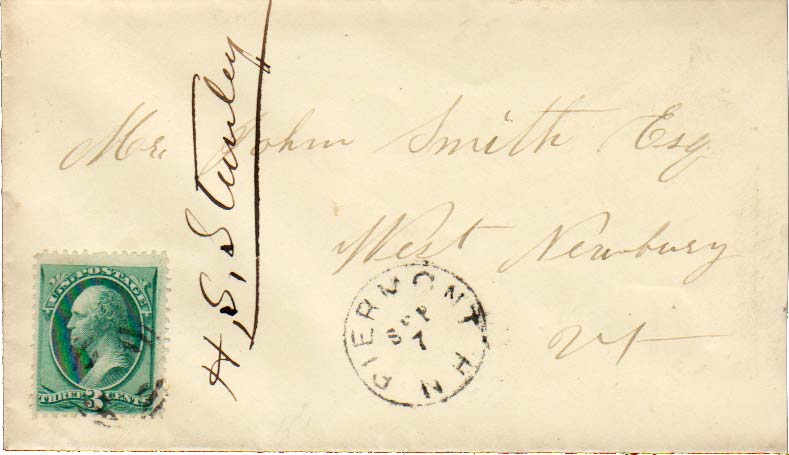 Mr. John Smith Esq
West Newbury
Vt
H. S. Stanley
PIERMONT N.H
SEP
7
U.S. POSTAGE
THREE 3 CENTS